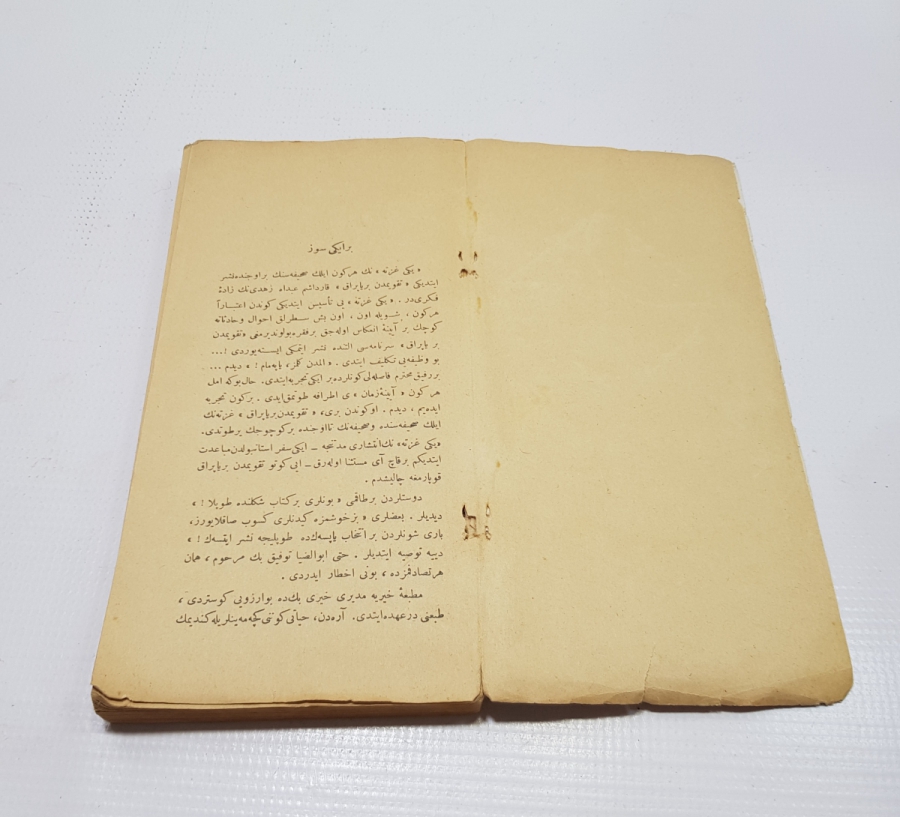 بر ایکی سوز
« یکی غزته » نك هركون ایلك صحیفه‌سنك بر اوجنده نشر
ایتدیکی « تقویمدن بریاپراق » قارداشم عبداء زهدی‌نك زادهٔ
فکری‌در . « یکی غزته » یی تأسیس ایتدیکی کوندن اعتباراً
هرکون ، شویله اون ، اون بش سطرلق احوال وحادثاته
کوچك بر آیینهٔ انعکاس اوله‌جق بر فقره بولوندیرمنی « تقویمدن
بر یاپراق » سرنامه‌سی التنده نشر ایتمکی ایسته‌یوردی ! ...
بو وظیفه‌یی تکلیف ایتدی . « المدن کلمز ، یاپه‌مام ! » دیدم ... .
بر رفیق محترم فاصله‌لی کونلرده بر ایکی تجربه ایتدی . حال بوکه امل
هر کون « آیینهٔ زمان » ی اطرافه طوتمق‌ایدی . برکون تجربه
ایده‌یم ، دیدم . اوکوندن بری ، « تقویمدن بریاپراق » غزته‌نك
ایلك صحیفه‌سنده وصحیفه‌نك تااوجنده برکوچوجك یرطوتدی .
« یکی غزته » نك انتشاری مدتنجه ــ ایکی سفر استانبولدن مباعدت
ایتدیکم برقاچ آی مستثنا اوله‌رق ــ ایی کوتو تقویمدن بریاپراق
قوپارمغه چالیشدم .
دوستلردن برطاقمی « بونلری برکتاب شکلنده طوپلا ! »
دیدیلر . بعضلری « بزخوشمزه کیدنلری کسوب صاقلایورز ،
باری شونلردن بر انتخاب یاپسه‌ك‌ده طوپلیجه نشر ایتسه‌ك ! »
دییه توصیه ایتدیلر . حتی ابوالضیا توفیق بك مرحوم ، همان
هر تصادفمزده ، بونی اخطار ایدردی .
مطبعهٔ خیریه مدیری خیری بك‌ده بوآرزویی کوستردی ،
طبعنی درعهده ایتدی . آره‌دن ، حیاتی کوتنی کچه‌مه‌ینلریله کندیمك